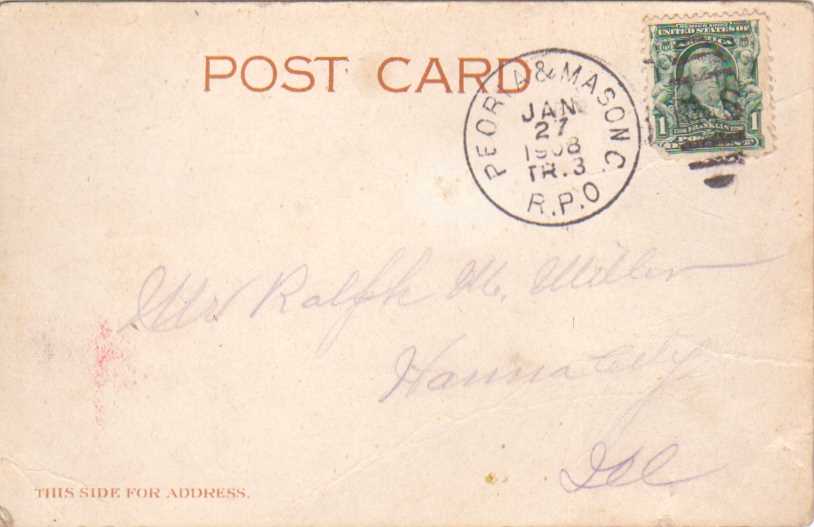 POST CARD
PEORIA & MASON C
JAN
27
1908
TR. 3
R.P.O
UNITED STATES OF
AMERICA
1 FRANKLIN 1
Mr Ralph M. Miller
Hanna City
Ill
THIS SIDE FOR ADDRESS.